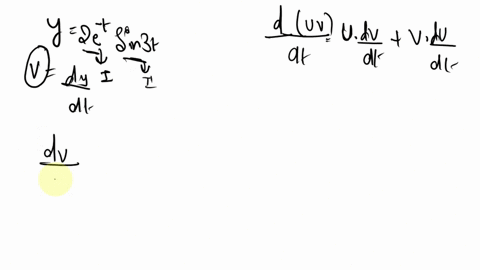 y = 2e^t sin3t
↓ I ↓ I
V = dy/dt
dv
d(UV)/dt = U.dv/dt + V.dU/dt